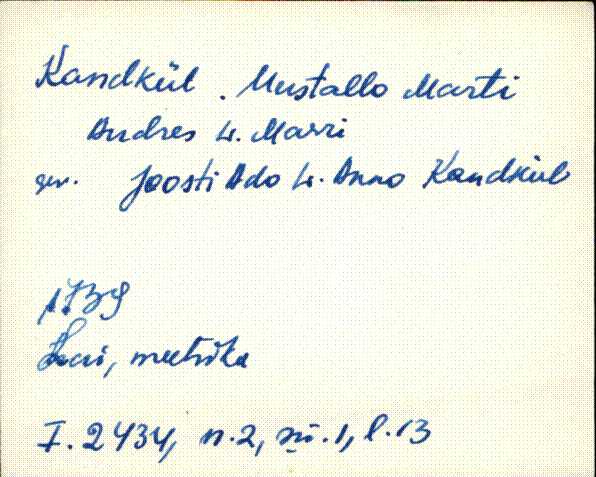 Kandkül. Mustallo Marti
Andres w. Marri
gev. Joosti Ado w. Anno Kandkül
1739
meetrika
F. 2434, n.2, sü.1, l.13